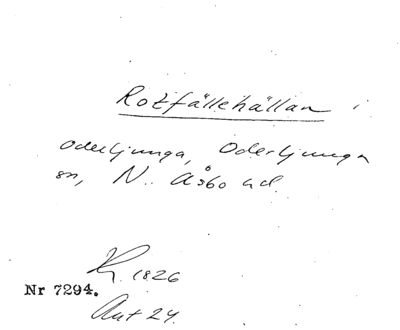 Rotfällehällan i
Oderljunga, Oderljunga
sn, N. Åsbo hd.
1826
Nr 7294.
Ant 24.